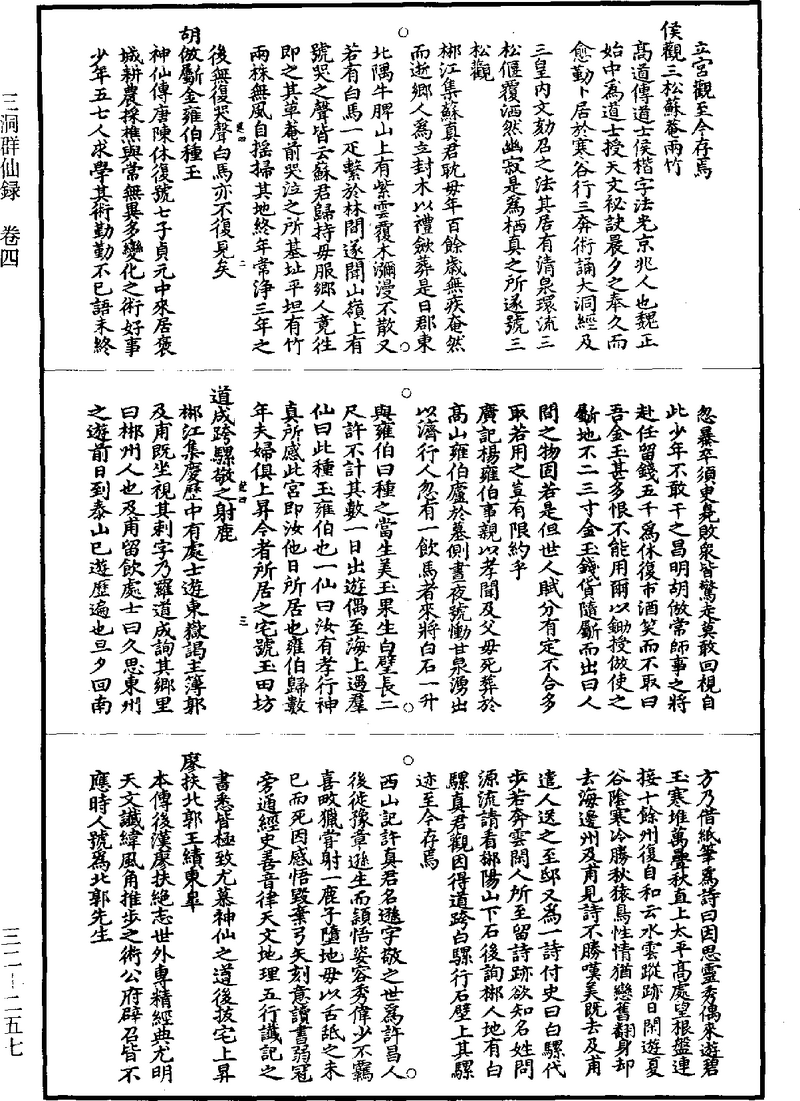 三洞群仙録　卷四
三二—二五七
立宮觀至今存焉
侯觀三松蘇菴兩竹
高道傳道士侯楷字法光京兆人也魏正
始中為道士授天文秘訣晨夕之奉久而
愈勤卜居於寒谷行三奔術誦大洞經及
三皇内文劾召之法其居有清泉環流三
松偃覆洒然幽寂是為栖真之所遂號三
松觀
郴江集蘇真君耽母年百餘歲無疾奄然
而逝鄉人為立封木以禮斂葬是日郡東
北隅牛脾山上有紫雲覆木瀰漫不散又
若有白馬一疋繫於林間遂聞山嶺上有
號哭之聲皆云蘇君歸持母服鄉人竟往
即之其草菴前哭泣之所基址平坦有竹
兩株無風自摇掃其地終年常淨三年之
後無復哭聲白馬亦不復見矣
胡倣斸金雍伯種玉
神仙傳唐陳休復號七子貞元中來居褒
城耕農採樵與常無異多變化之術好事
少年五七人求學其術勤勤不已語未終
忽暴卒須臾臭敗衆皆驚走莫敢回視自
此少年不敢干之昌明胡倣常師事之將
赴任留錢五千為休復市酒笑而不取曰
吾金玉甚多恨不能用爾以鋤授倣使之
斸地不二三寸金玉錢貨隨斸而出曰人
間之物固若是但世人賦分有定不合多
取若用之豈有限約乎
廣記楊雍伯事親以孝聞及父母死葬於
高山雍伯廬於墓側晝夜號慟甘泉湧出
以濟行人忽有一飲馬者來將白石一升
與雍伯曰種之當生美玉果生白璧長二
尺許不計其數一日出遊偶至海上遇羣
仙曰此種玉雍伯也一仙曰汝有孝行神
真所感此宮即汝他日所居也雍伯歸數
年夫婦俱上昇今者所居之宅號玉田坊
道成跨騾敬之射鹿
郴江集慶歷中有處士遊東嶽謁主簿郭
及甫既坐視其刺字乃羅道成詢其鄉里
曰郴州人也及甫留飲處士曰久思東州
之遊前日到泰山已遊歷遍也旦夕回南
方乃借紙筆為詩曰因思靈秀偶來遊碧
玉寒堆萬疊秋直上太平高處望根盤連
接十餘州復自和云水雲蹤跡日閑遊夏
谷陰寒冷勝秋猿鳥性情猶戀舊翻身却
去海邊州及甫見詩不勝嘆美既去及甫
遣人送之至邸又為一詩付吏曰白騾代
步若奔雲閑人所至留詩跡欲知名姓問
源流請看郴陽山下石後詢郴人地有白
騾真君觀因得道跨白騾行石壁上其騾
迹至今存焉
西山記許真君名遜字敬之世為許昌人
後徙豫章遜生而穎悟姿容秀偉少不羈
喜畋獵嘗射一鹿子墮地母以舌䑛之未
已而死因感悟毀棄弓矢刻意讀書弱冠
旁通經史善音律天文地理五行讖記之
書悉皆極致尤慕神仙之道後拔宅上昇
廖扶北郭王績東臯
本傳後漢廖扶絕志世外專精經典尤明
天文讖緯風角推步之術公府辟召皆不
應時人號為北郭先生